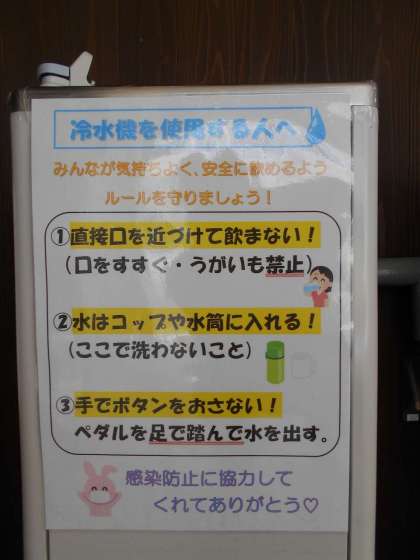 冷水機を使用する人へ
みんなが気持ちよく、安全に飲めるよう
ルールを守りましょう！
①直接口を近づけて飲まない！
（口をすすぐ・うがいも禁止）
②水はコップや水筒に入れる！
（ここで洗わないこと）
③手でボタンをおさない！
ペダルを足で踏んで水を出す。
感染防止に協力して
くれてありがとう♡